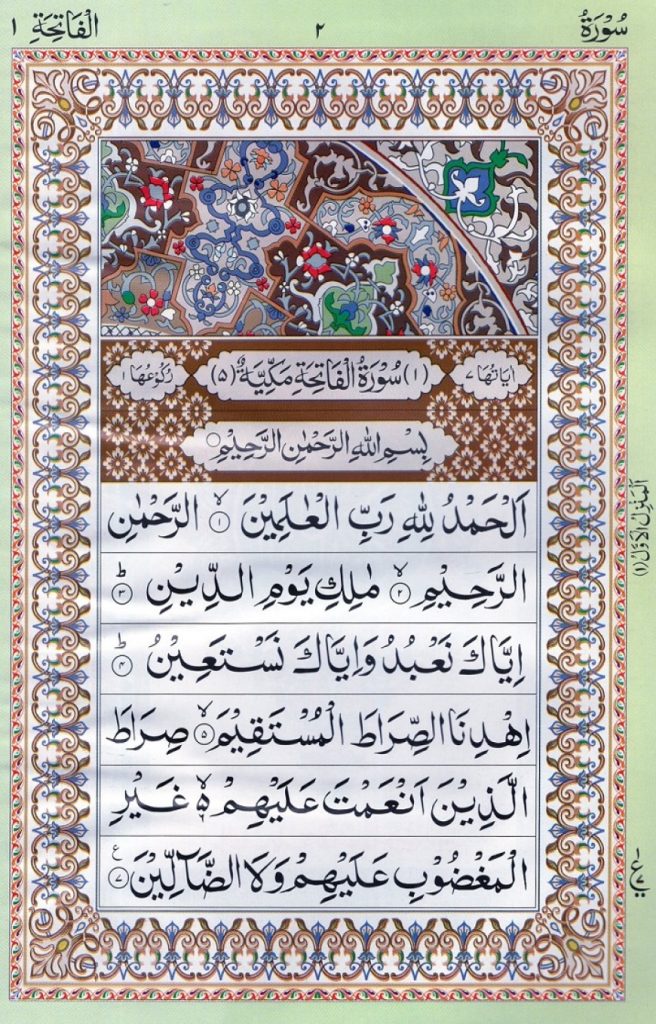 سُوْرَةُ ٢ الْفَاتِحَةِ ١
اٰيَاتُهَا ٧ (١) سُوْرَةُ الْفَاتِحَةِ مَكِّيَّةٌ (٥) رُكُوْعُهَا ١
بِسْمِ اللهِ الرَّحْمٰنِ الرَّحِيْمِ
اَلْحَمْدُ لِلّٰهِ رَبِّ الْعٰلَمِيْنَ ۙ﴿١﴾ الرَّحْمٰنِ
الرَّحِيْمِ ۙ﴿٢﴾ مٰلِكِ يَوْمِ الدِّيْنِ ؕ﴿٣﴾
اِيَّاكَ نَعْبُدُ وَاِيَّاكَ نَسْتَعِيْنُ ؕ﴿٤﴾
اِهْدِنَا الصِّرَاطَ الْمُسْتَقِيْمَ ۙ﴿٥﴾ صِرَاطَ
الَّذِيْنَ اَنْعَمْتَ عَلَيْهِمْ ۙ۵ غَيْرِ
الْمَغْضُوْبِ عَلَيْهِمْ وَلَا الضَّآلِّيْنَ ﴿٧﴾ ع
اَلْمَنْزِلُ الْاَوَّلُ (١)